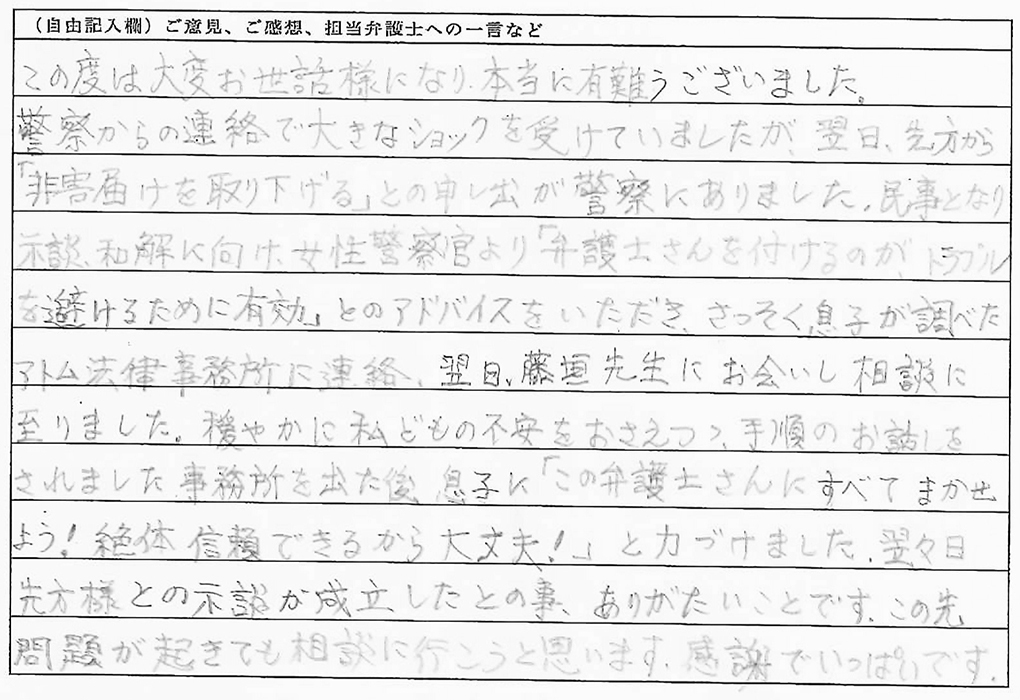 （自由記入欄）ご意見、ご感想、担当弁護士への一言など
この度は大変お世話様になり、本当に有難うございました。
警察からの連絡で大きなショックを受けていましたが、翌日、先方から
「非害届けを取り下げる」との申し出が警察にありました。民事となり
示談、和解に向け、女性警察官より「弁護士さんを付けるのが、トラブル
を避けるために有効」とのアドバイスをいただき、さっそく息子が調べた
アトム法律事務所に連絡、翌日、藤垣先生にお会いし相談に
至りました。穏やかに私どもの不安をおさえつつ、手順のお話しを
されました。事務所を出た後、息子に「この弁護士さんにすべてまかせ
よう！絶体信頼できるから大丈夫！」と力づけました。翌々日
先方様との示談が成立したとの事、ありがたいことです。この先
問題が起きても相談に行こうと思います。感謝でいっぱいです。